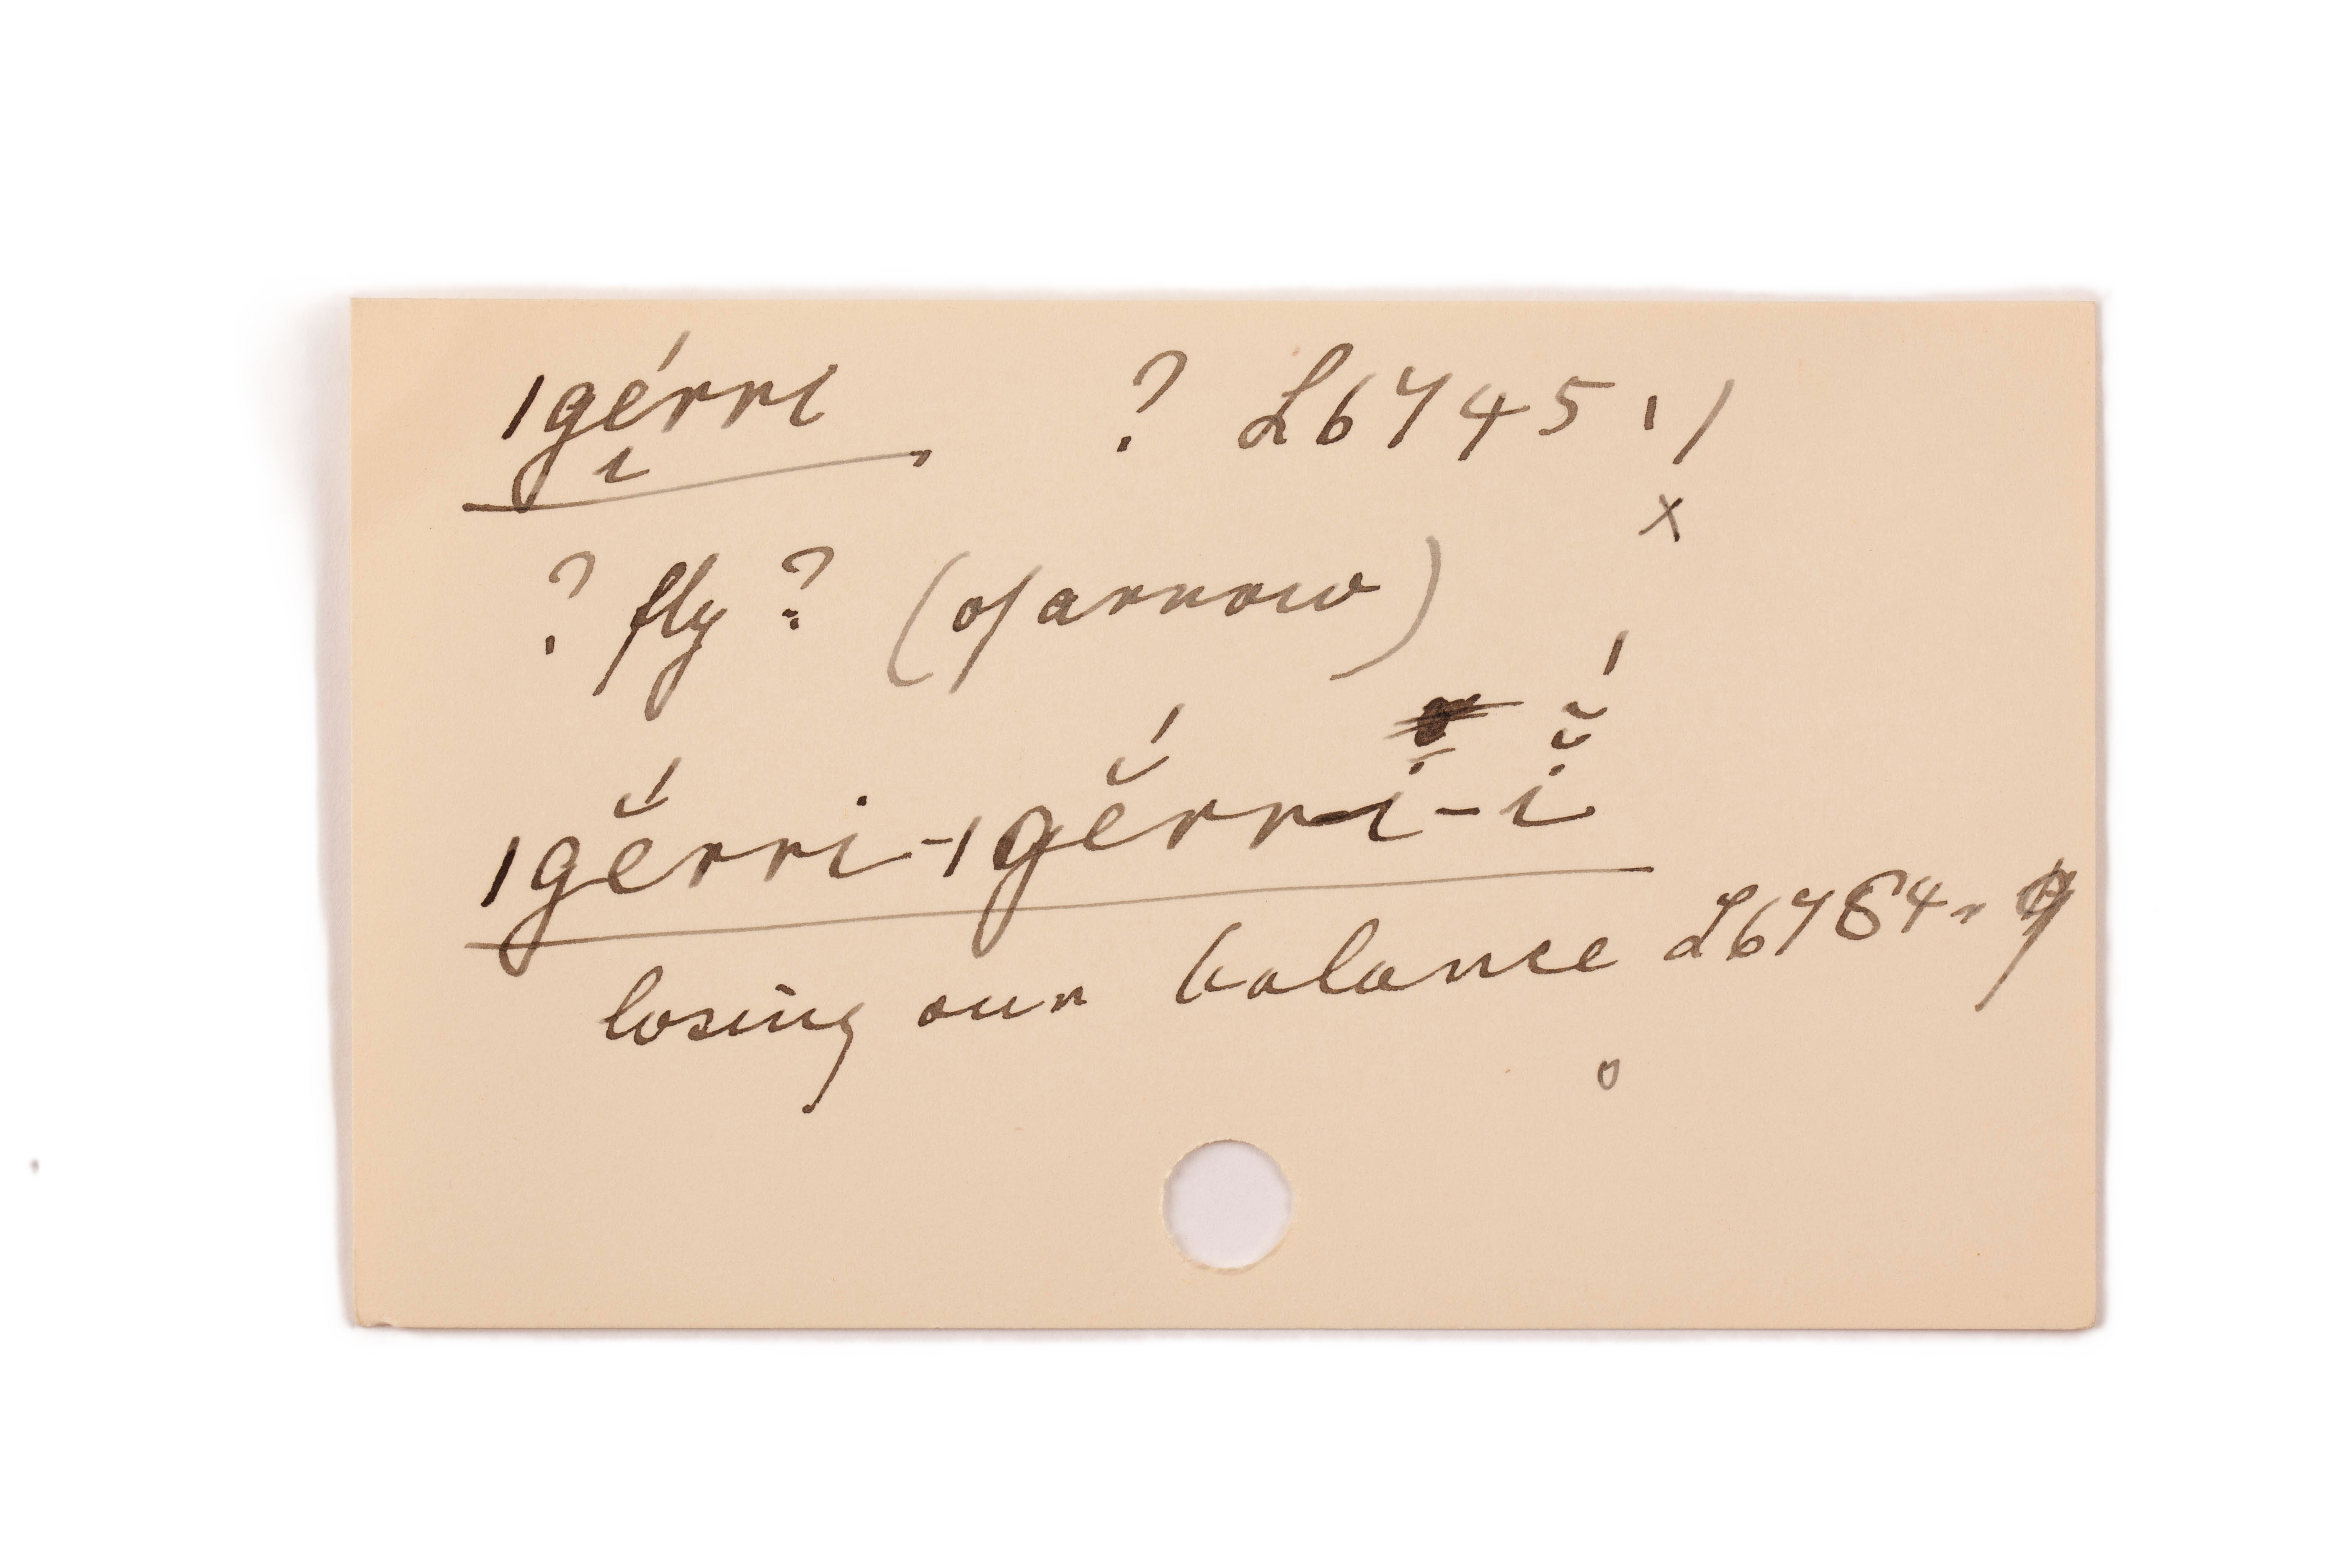 ǀgérri ? L6745'/
i
x
? fly ? (of arrow)
ǀgĕ́rri-ǀgĕ́rri-ĭ̃́
losing our balance L6784
o